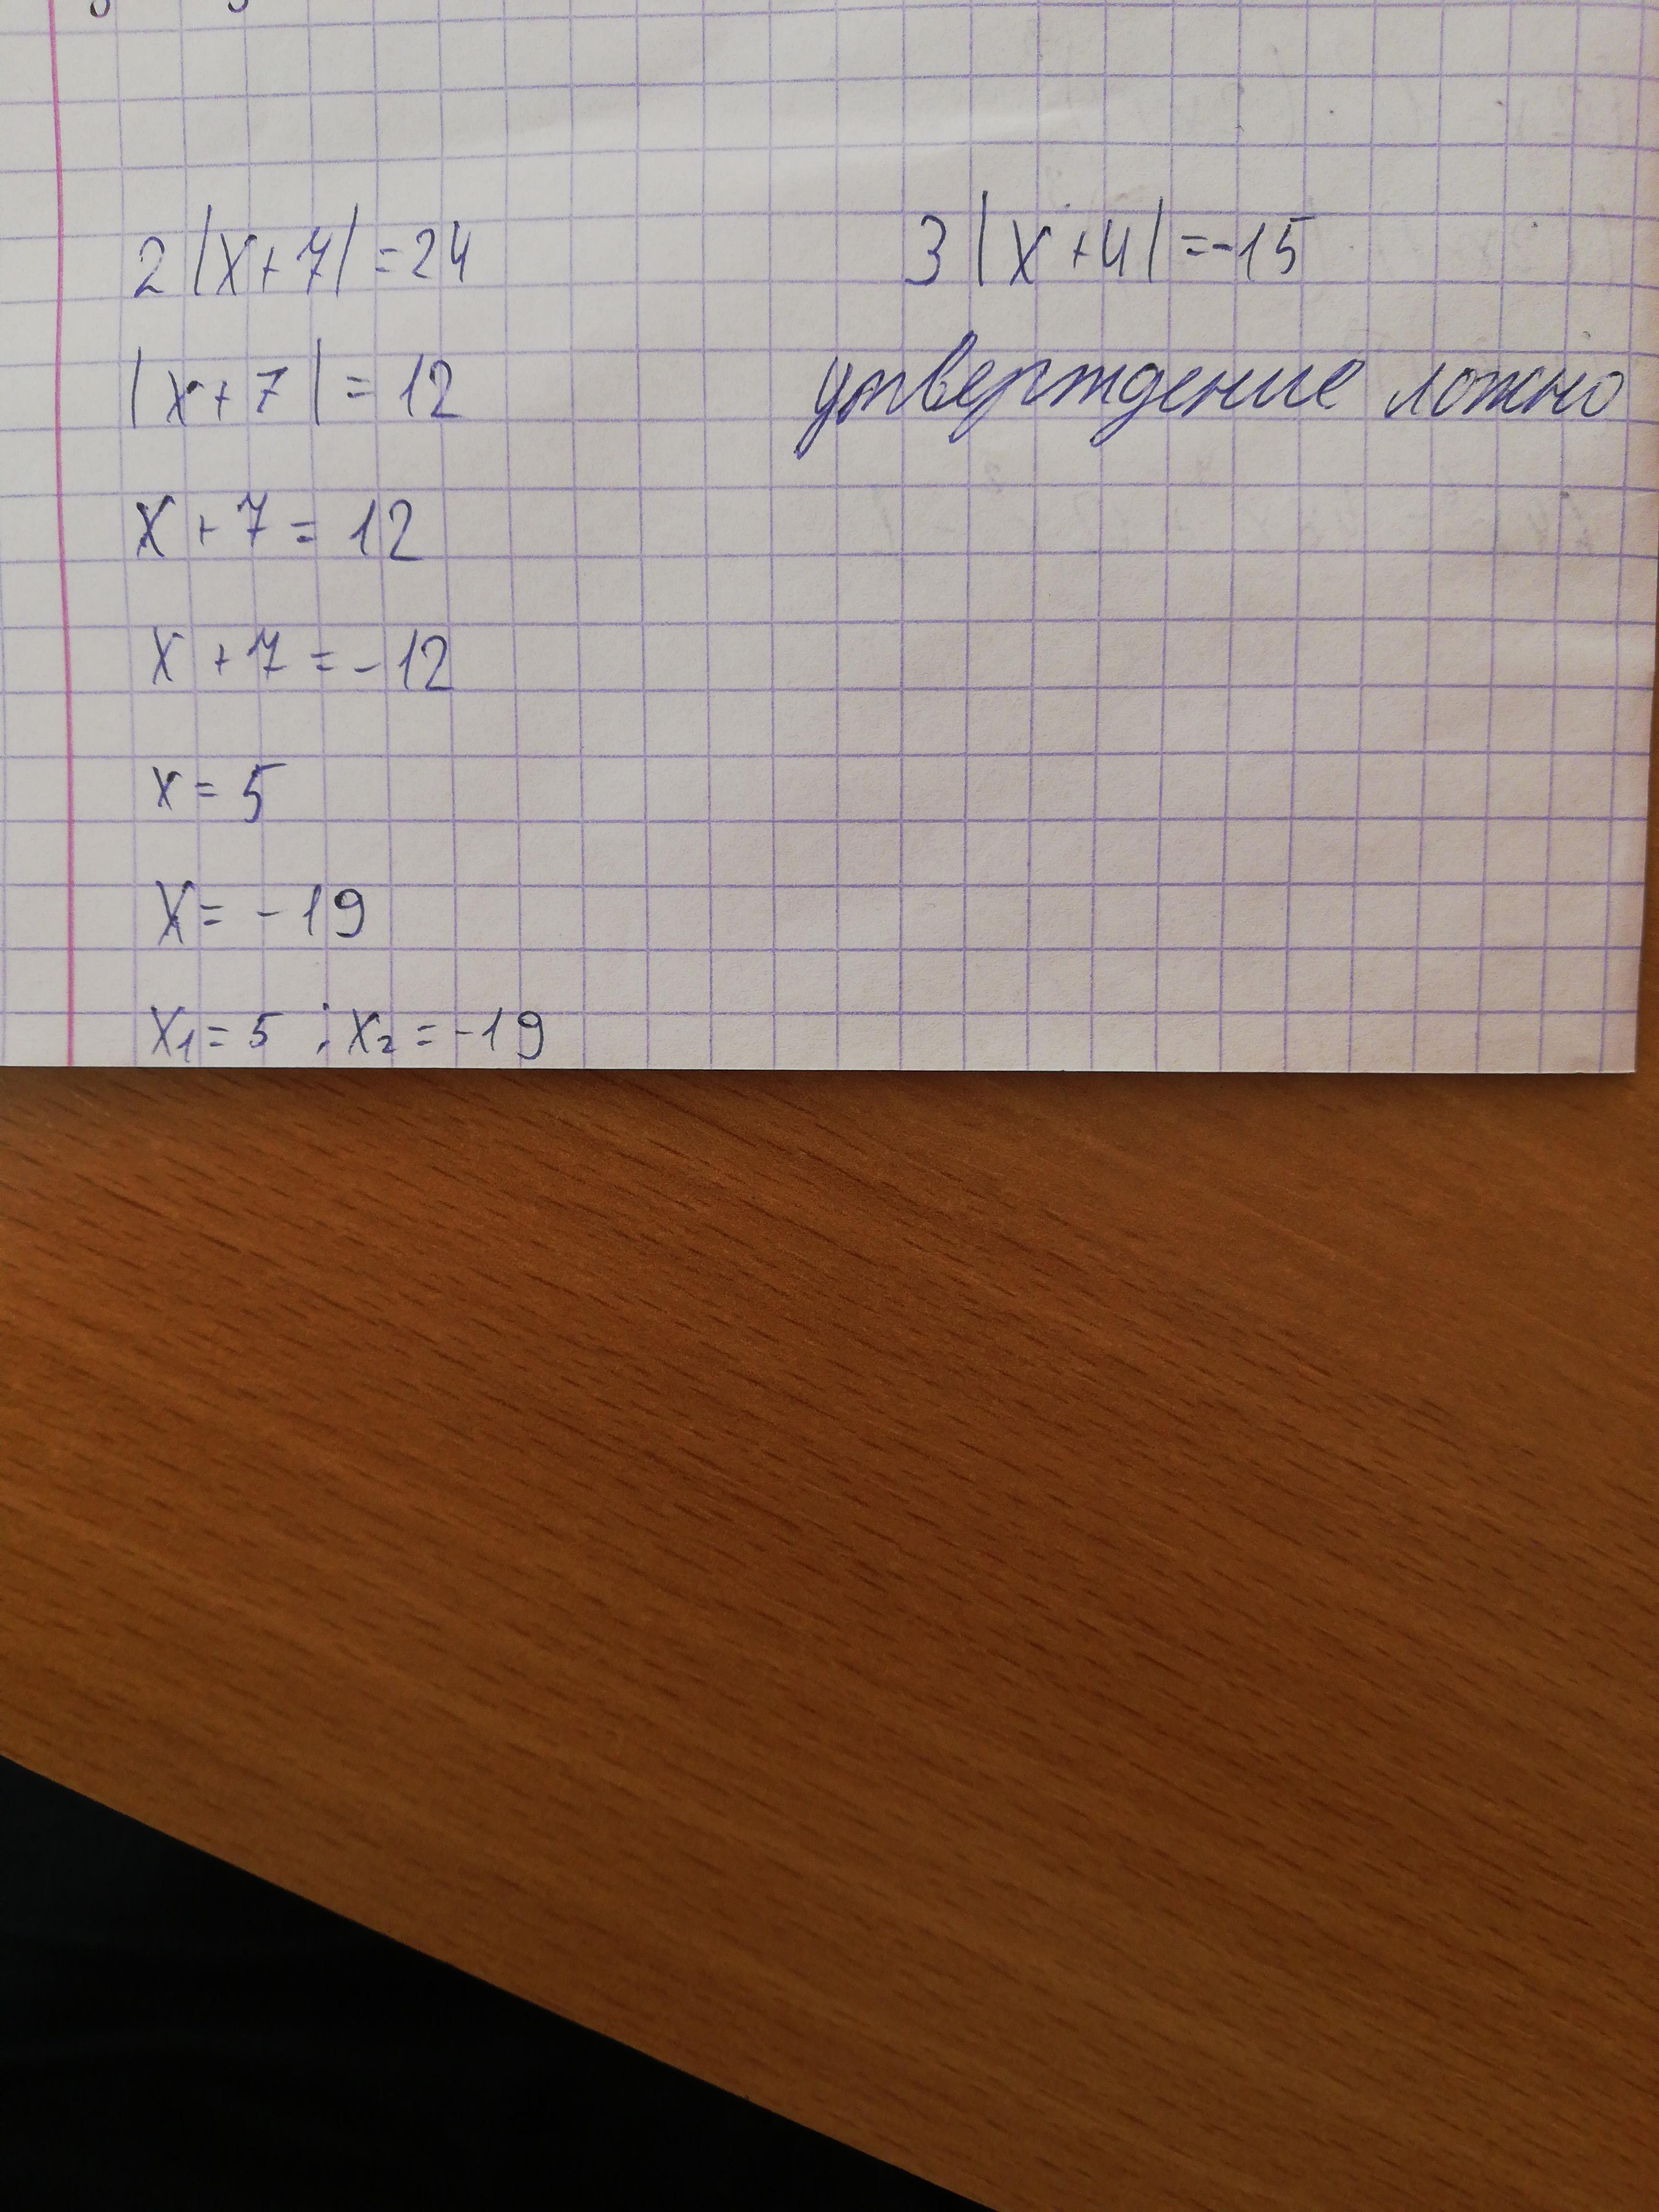 2|x+7|=24
|x+7|=12
x+7=12
x+7=-12
x=5
x=-19
x₁=5 ; x₂=-19
3|x+4|=-15
утверждение ложно